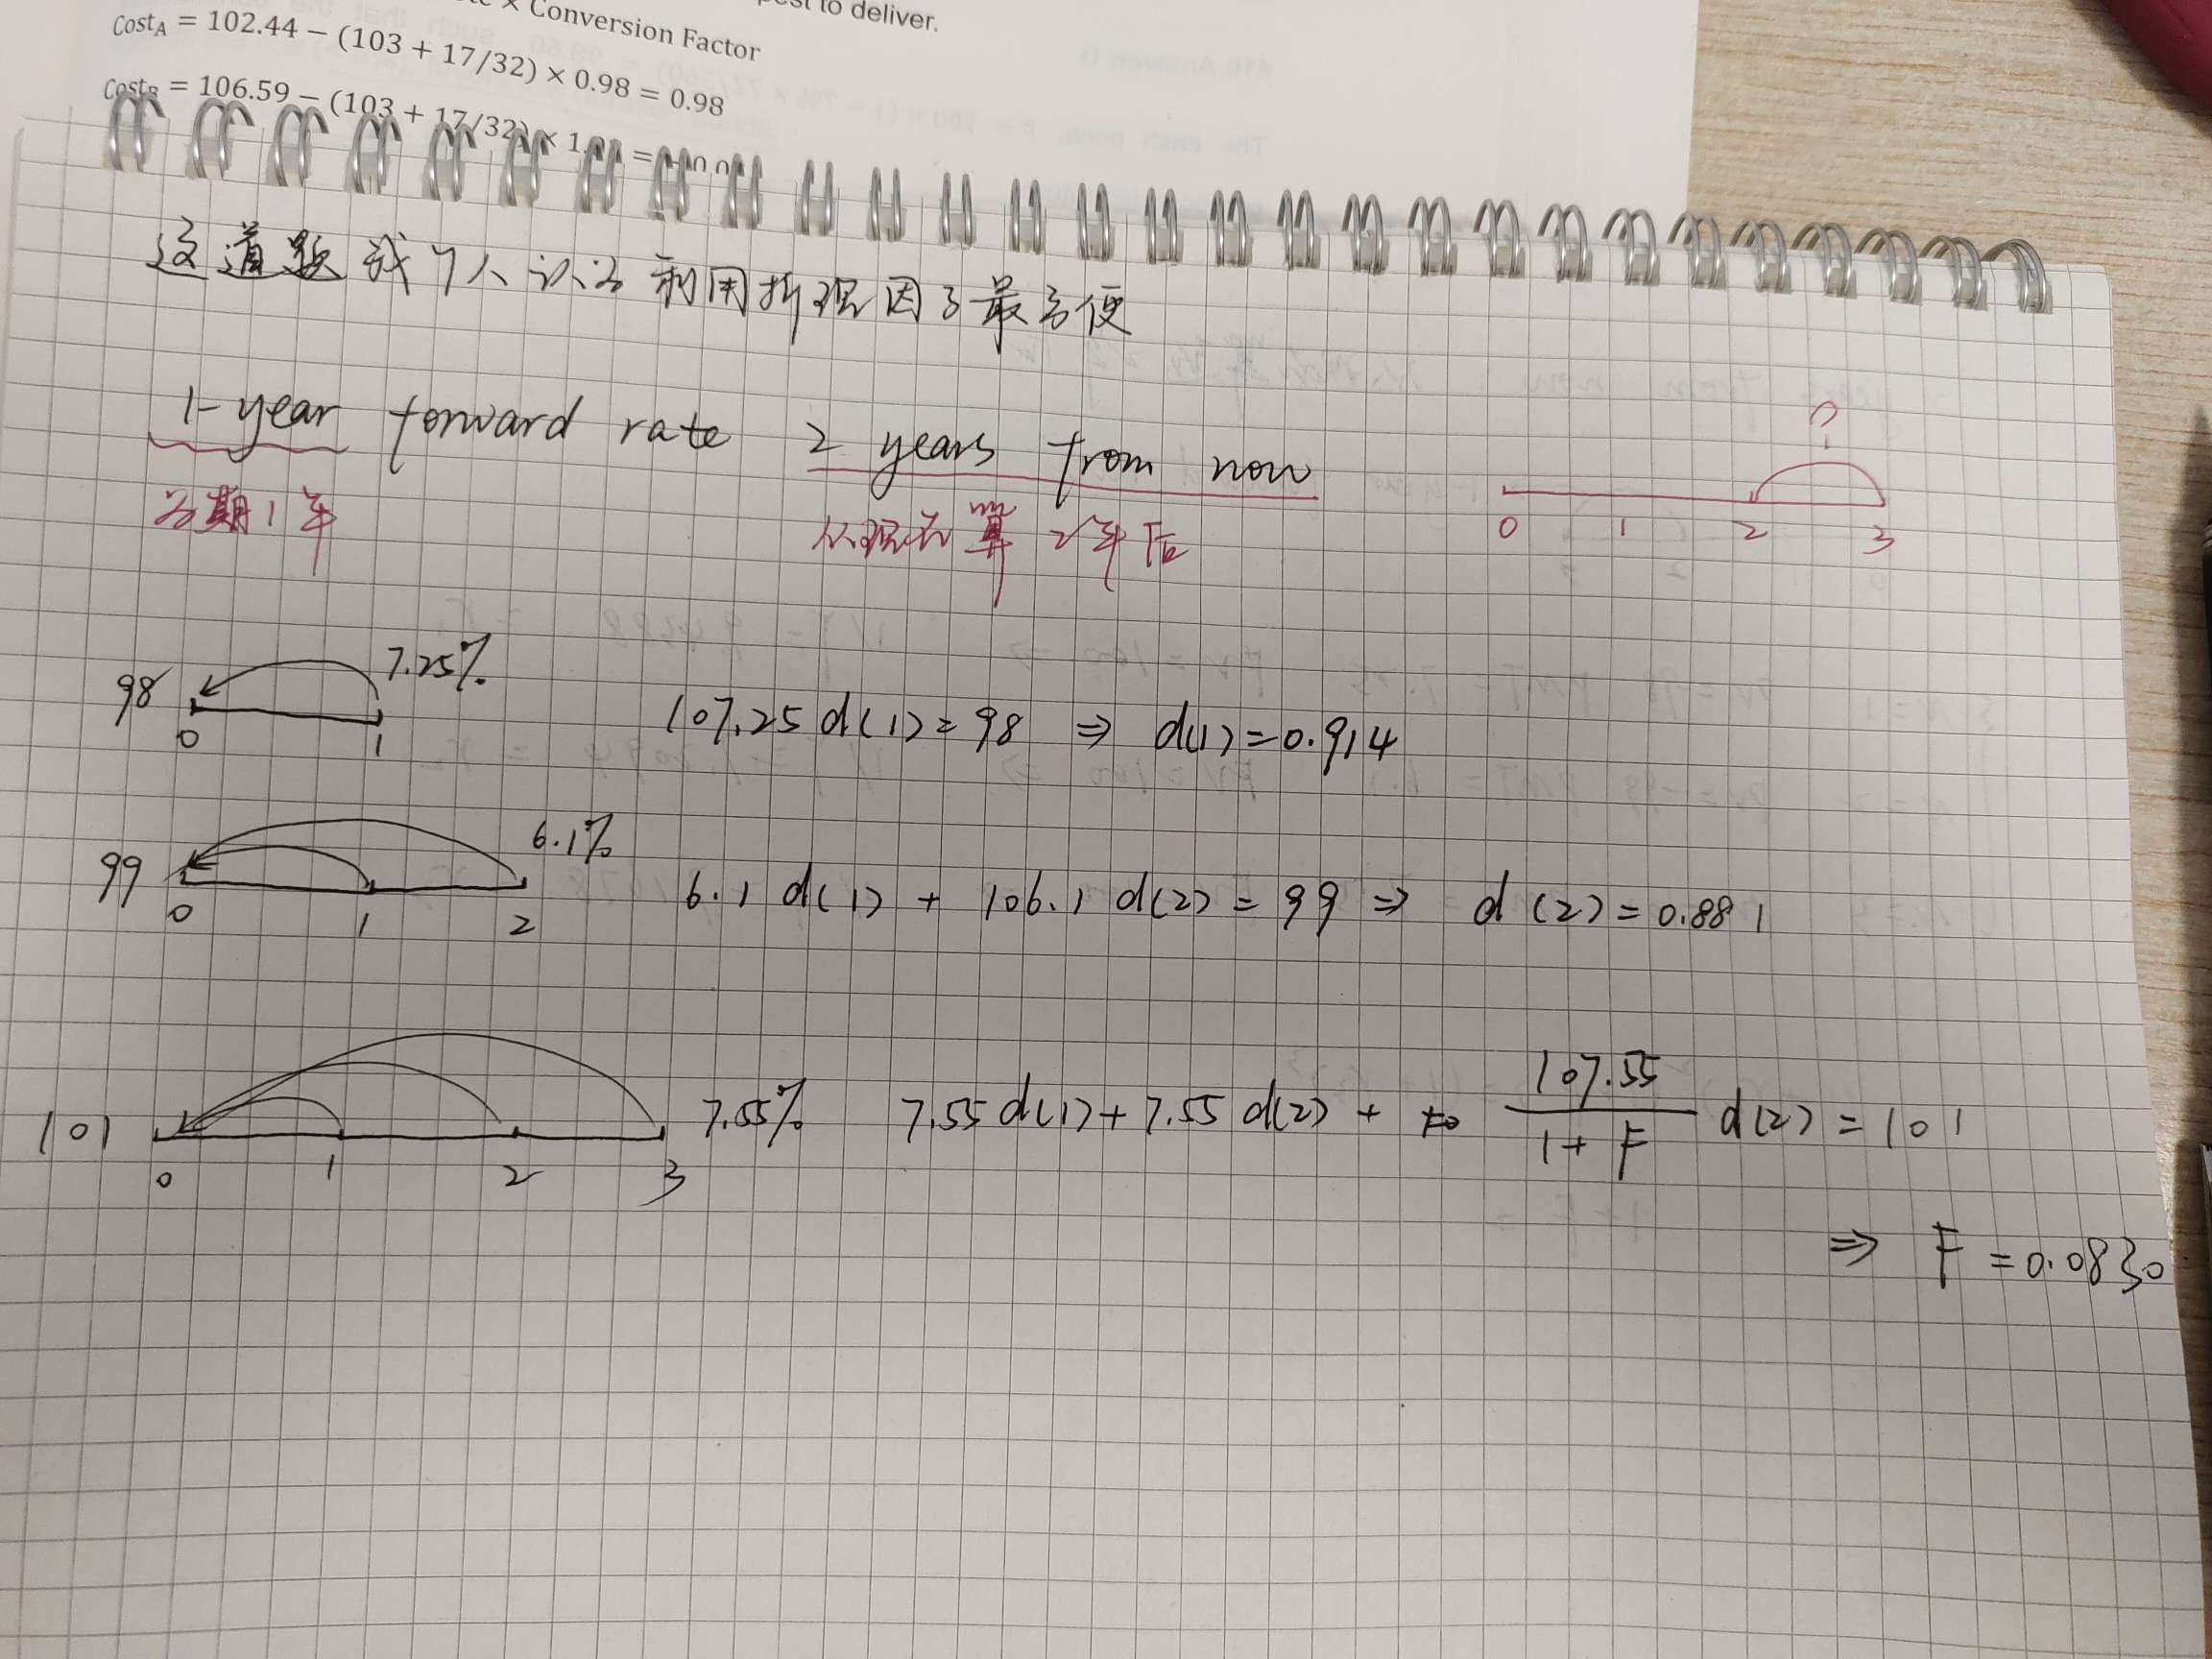 to deliver.
× Conversion Factor
Cost_A = 102.44 − (103 + 17/32) × 0.98 = 0.98
Cost_B = 106.59 − (103 + 17/32) × 1.
这道题我个人认为利用折现因子最方便
1-year forward rate 2 years from now
为期1年 从现在算 2年后
0 1 2 3
98 7.25% 107.25 d(1) = 98 ⇒ d(1) = 0.914
0 1
99 6.1% 6.1 d(1) + 106.1 d(2) = 99 ⇒ d(2) = 0.881
0 1 2
101 7.55% 7.55 d(1) + 7.55 d(2) + 107.55/(1+F) d(2) = 101
0 1 2 3
⇒ F = 0.0830